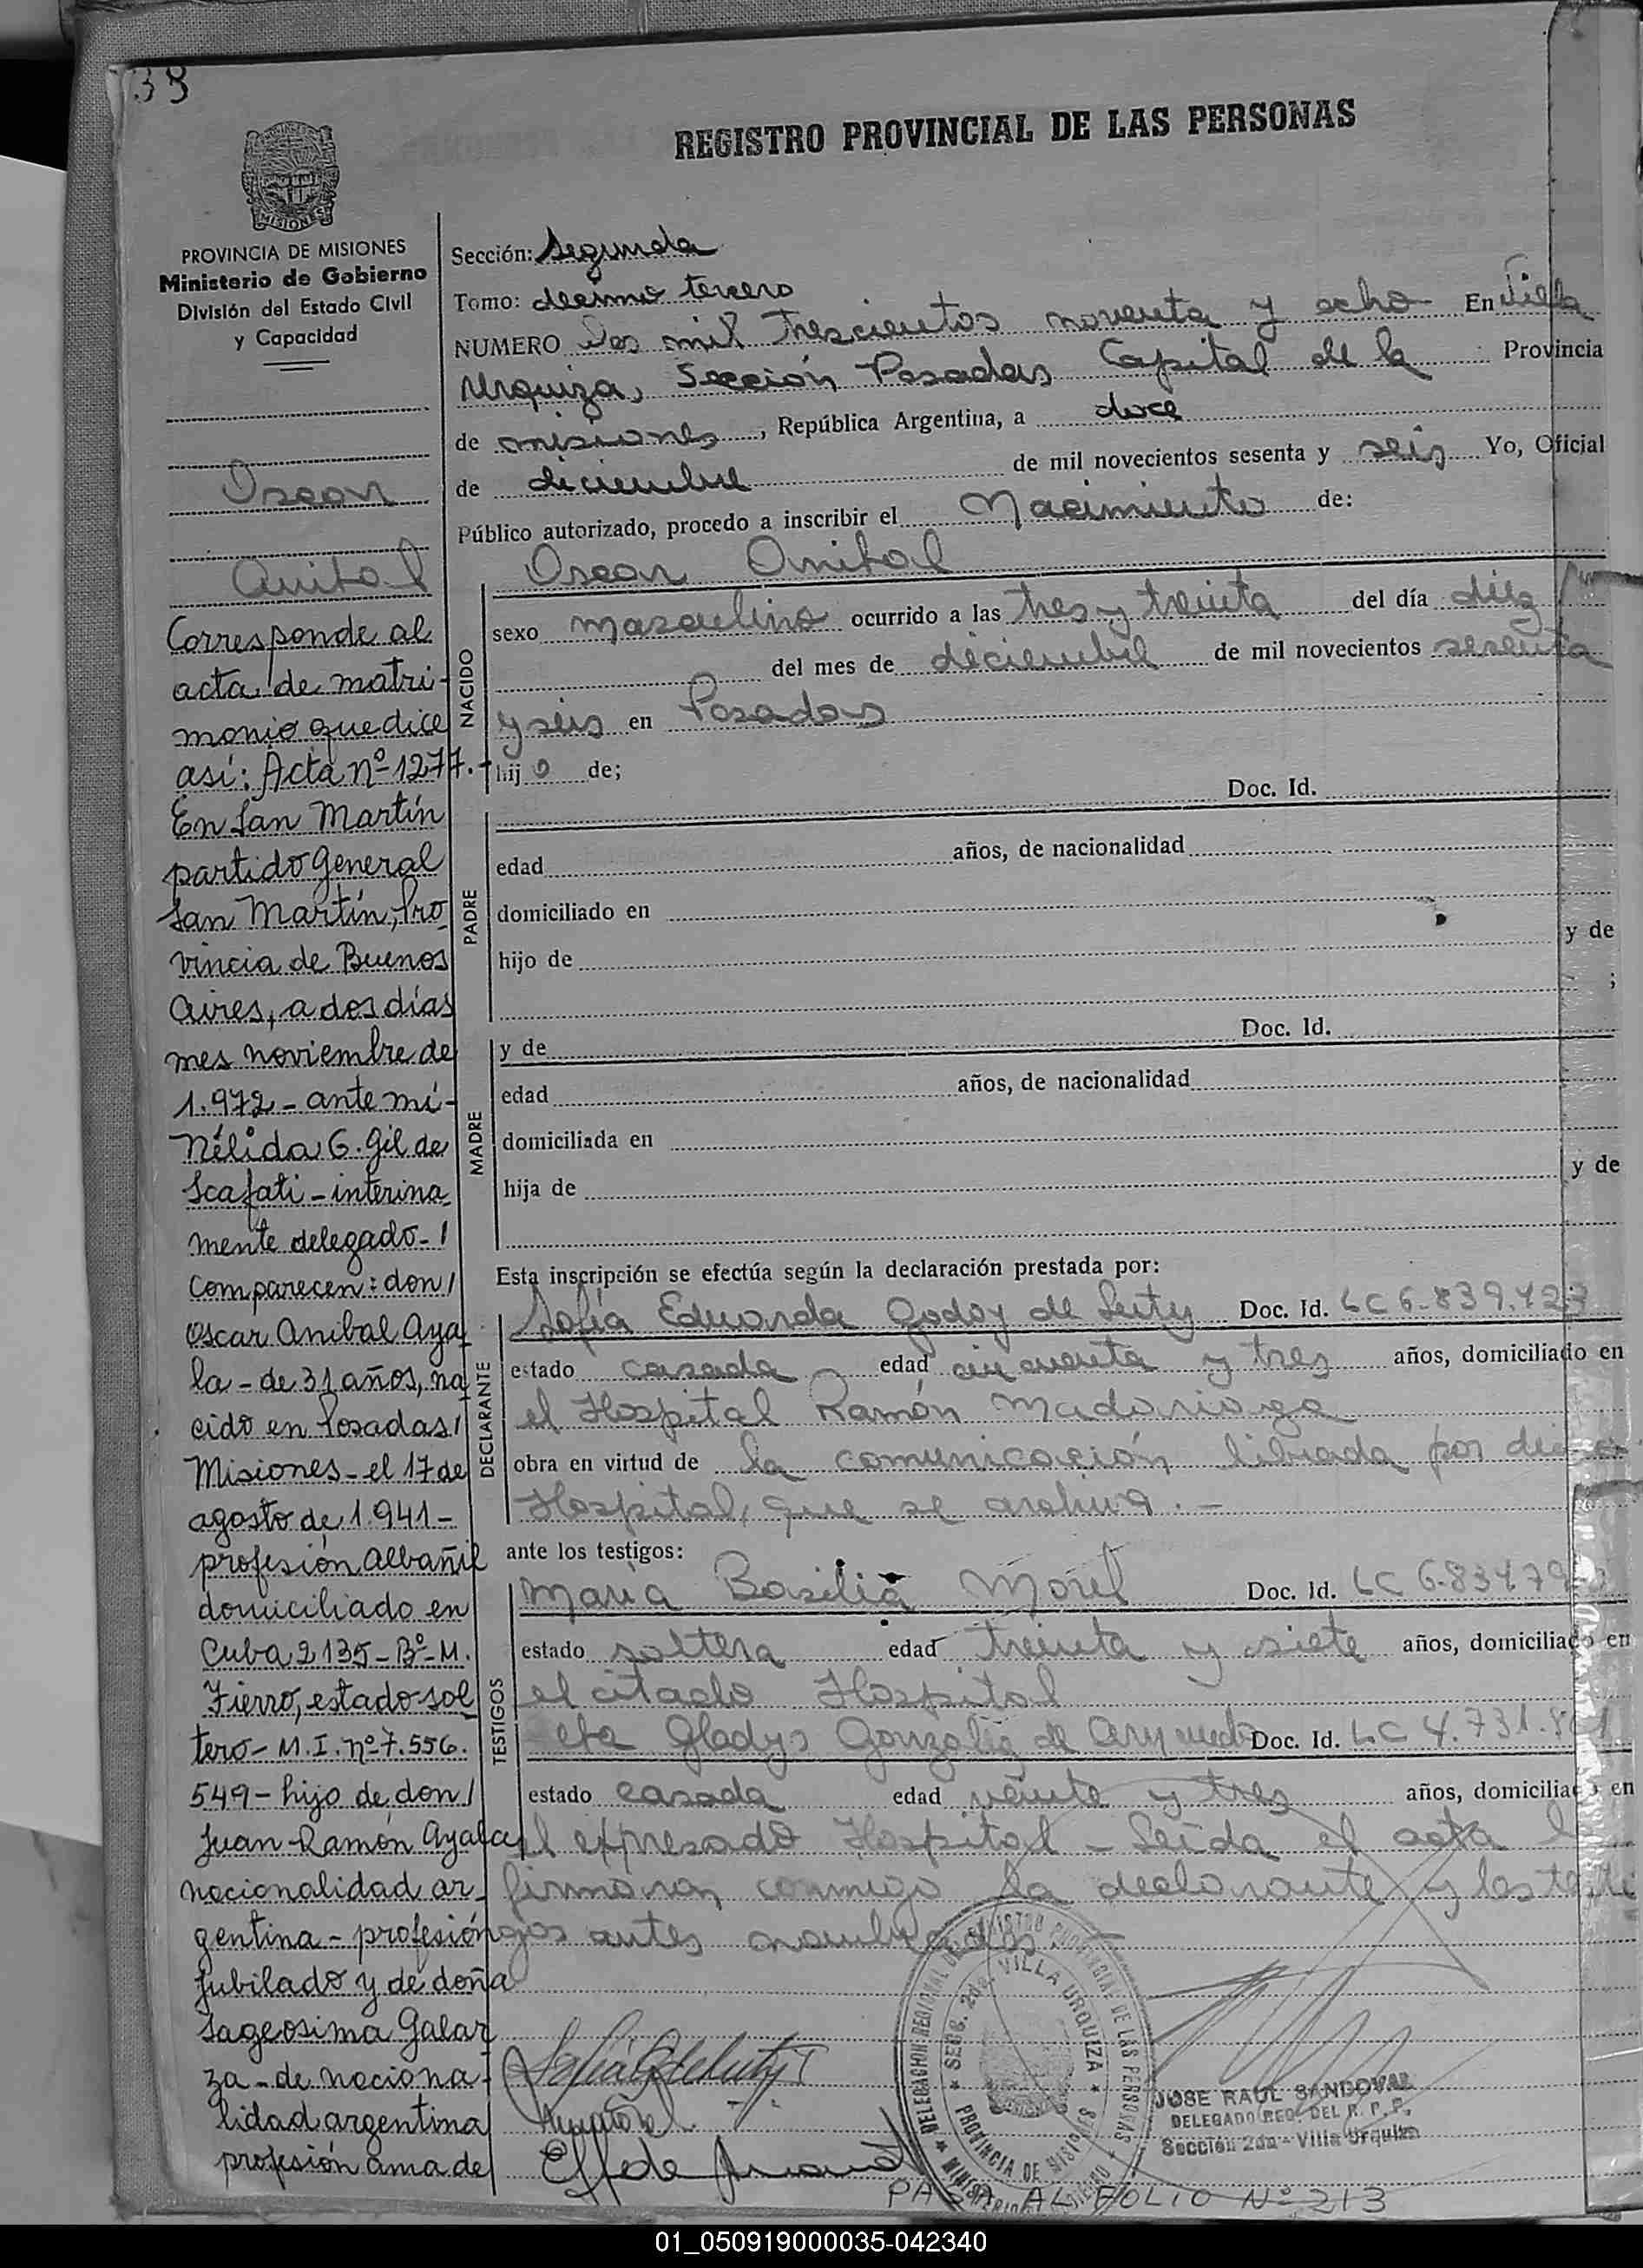 39
REGISTRO PROVINCIAL DE LAS PERSONAS
MISIONES
PROVINCIA DE MISIONES
Ministerio de Gobierno
División del Estado Civil
y Capacidad
Oscar
Anibal
Corresponde al
acta de matri-
monio que dice
así: Acta nº 1277.-
En San Martín
partido General
San Martín, Pro
vincia de Buenos
Aires, a dos días
mes noviembre de
1.972 - ante mí -
Nélida G. Gil de
Scafati - interina
mente delegado - /
Comparecen: don /
Oscar Anibal Aya
la - de 31 años, na
cido en Posadas /
Misiones - el 17 de
agosto de 1.941 -
profesión albañil
domiciliado en
Cuba 2135 - Bº M.
Fierro, estado sol
tero - M.I. nº 7.556.
549 - hijo de don /
Juan Ramón Ayala
nacionalidad ar-
gentina - profesión
jubilado y de doña
Galar
za - de naciona-
lidad argentina
profesión ama de
Sección: Segunda
Tomo: decimo tercero
NUMERO Dos mil Trescientos noventa y ocho En Villa
Urquiza, Sección Posadas Capital de la Provincia
de misiones, República Argentina, a doce
de diciembre de mil novecientos sesenta y seis Yo, Oficial
Público autorizado, procedo a inscribir el Nacimiento de:
NACIDO
Oscar Anibal
sexo masculino ocurrido a las tres y treinta del día diez
del mes de diciembre de mil novecientos sesenta
y seis en Posadas
hijo de;
PADRE
Doc. Id.
edad años, de nacionalidad
domiciliado en
hijo de y de
;
MADRE
y de Doc. Id.
edad años, de nacionalidad
domiciliada en
hija de y de
Esta inscripción se efectúa según la declaración prestada por:
DECLARANTE
Sofía Eduarda Godoy de Doc. Id. LC 6.839.423
estado casada edad cincuenta y tres años, domiciliado en
el Hospital Ramón Madariaga
obra en virtud de la comunicación librada por dicho
Hospital, que se archiva. -
ante los testigos:
TESTIGOS
María Basilia Morel Doc. Id. LC 6.83479
estado soltera edad treinta y siete años, domiciliado en
el citado Hospital
Gladys González de Doc. Id. LC 4.731.8
estado casada edad veinte y tres años, domiciliado en
el expresado Hospital - Leída el acta la
firmaron conmigo la declarante y los testi
gos antes nombrados. -
DELEGACION REGIONAL DEL REGISTRO PROVINCIAL DE LAS PERSONAS
SECC. 2da. VILLA URQUIZA
PROVINCIA DE MISIONES
JOSE RAUL SANDOVAL
DELEGADO REG. DEL R. P. P.
Sección 2da - Villa Urquiza
PASA AL FOLIO Nº 213
01_050919000035-042340